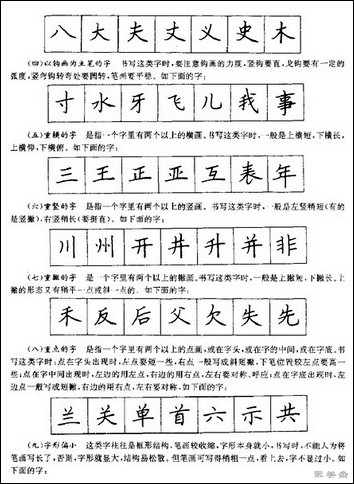 八大夫丈义史木
(四)以钩画为主笔的字 书写这类字时,要注意钩画的力度,竖钩要直,戈钩要有一定的
弧度,竖弯钩转弯处要圆转,笔画要平稳。如下面的字:
寸水牙飞儿我事
(五)重横的字 是指一个字里有两个以上的横画。书写这类字时,一般是上横短,下横长,
上横仰,下横俯。如下面的字:
三王正亚互表年
(六)重竖的字 是指一个字里有两个以上的竖画。书写这类字时,一般是左竖稍短(有的
是竖撇),右竖稍长(要挺直)。如下面的字:
川州开井升并非
(七)重撇的字 是一个字里有两个以上的撇画。书写这类字时,一般是上撇短,下撇长。上
撇的形态又有稍平一点或斜一点的。如下面的字:
禾反后父欠失先
(八)重点的字 是指一个字里有两个以上的点画,或在字头,或在字的中间,或在字底。书
写这类字时:点在字头出现时,左点要短一些,右点一般写成斜短撇,下笔位置较左点要高一
些;点在字中间出现时,左边的用左点,右边的用右点,左右要对称、呼应;点在字底出现时,左
边点一般写成短撇,右边的用右点,左右要对称。如下面的字:
兰关单首六示共
(九)字形偏小 这类字往往是框形结构,笔画较收缩,字形本身就小,书写时,不能人为将
笔画写长了,否则,字形就显大,结构易松散。但笔画可写得稍粗一点,看上去,字不是过小。如
下面的字: